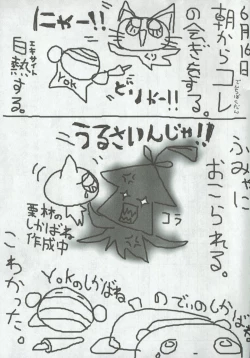 6月16日
朝からコレ
の会ぎをする。
エキサイト
白熱する。
にゃー!!
くり
Yok
どりゃー!!
うるさいんじゃ!!
ふみゃに
おこられる。
コラ
栗材の
しかばね
作成中
Yokのしかばね
のでぃのしかばね
こわかった。